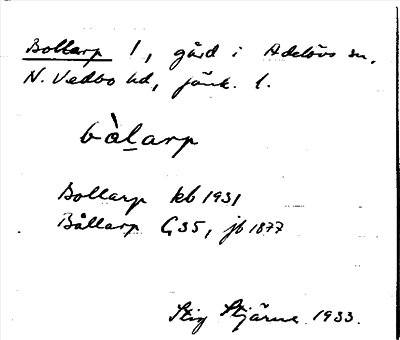 Bollarp 1, gård i Adelövs sn,
N. Vedbo hd, jönk. l.
bòlarp
Bollarp kb 1931
Bållarp G35, jb 1877
Stig Stjärne 1933.